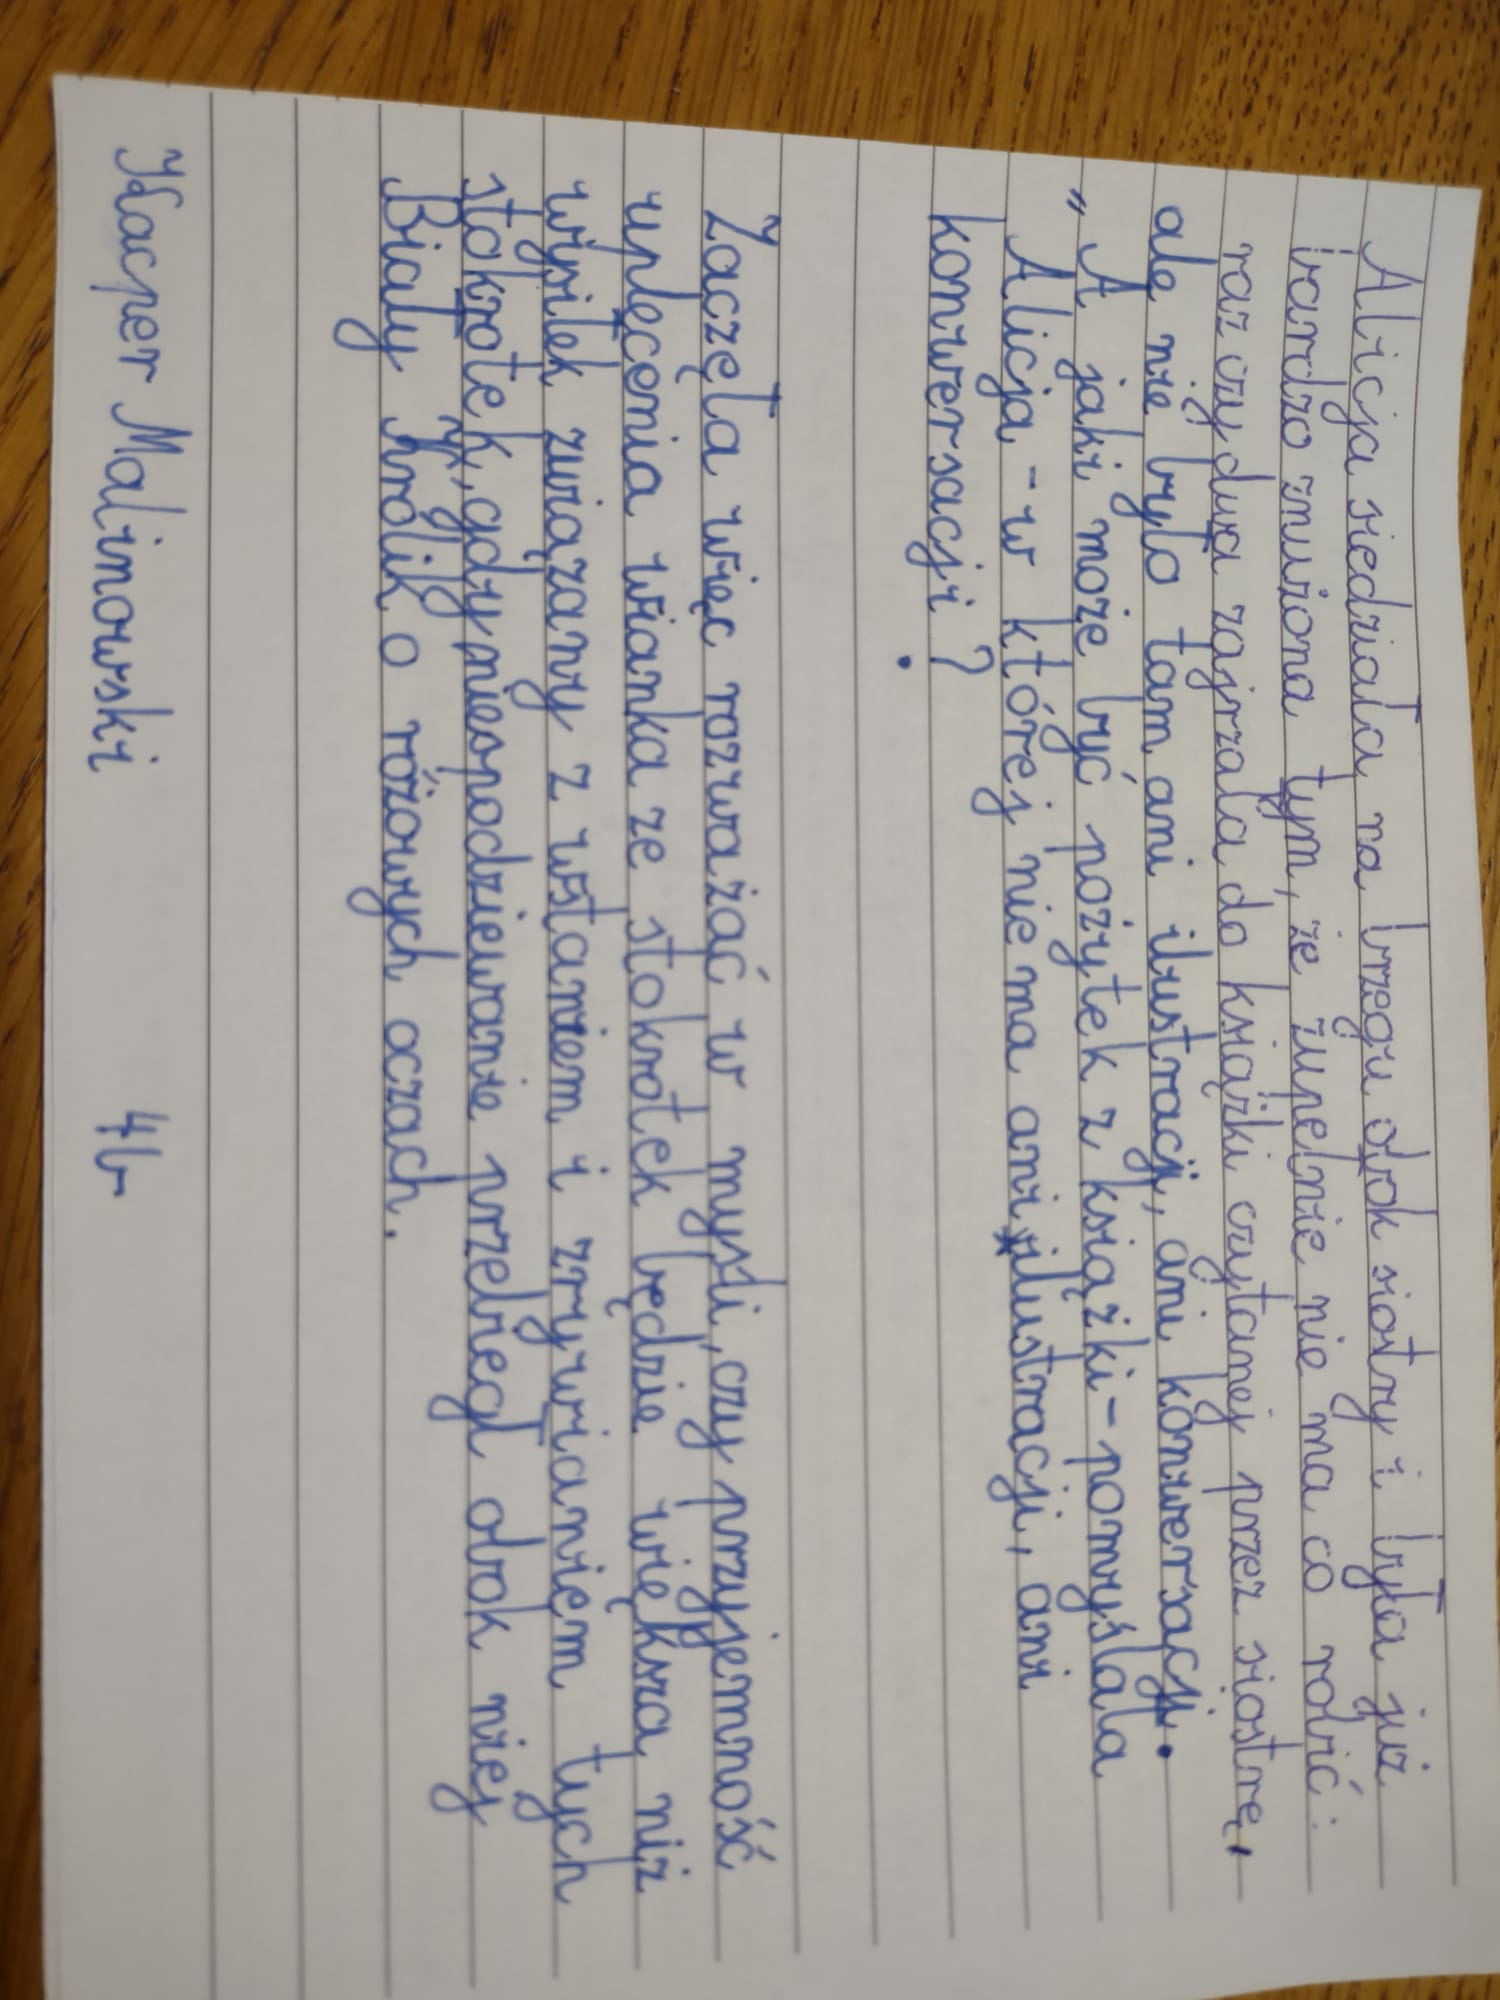 Alicja siedziała na brzegu obok siostry i była już
bardzo znużona tym, że żupełnie nie ma co robić:
raz czy dwa zajrzała do książki czytanej przez siostrę,
ale nie było tam ani ilustracji, ani konwersacji.
„A jaki może być pożytek z książki – pomyślała
Alicja – w której nie ma ani ilustracji, ani
konwersacji?
Zaczęła więc rozważać w mysli, czy przyjemność
uplecenia wianka ze stokrotek będzie większa niż
wysiłek związany z wstaniem i zrywianiem tych
stokrotek, gdy niespodziewanie przebiegł obok niej
Biały Królik o różowych oczach.
Kacper Malinowski 4b